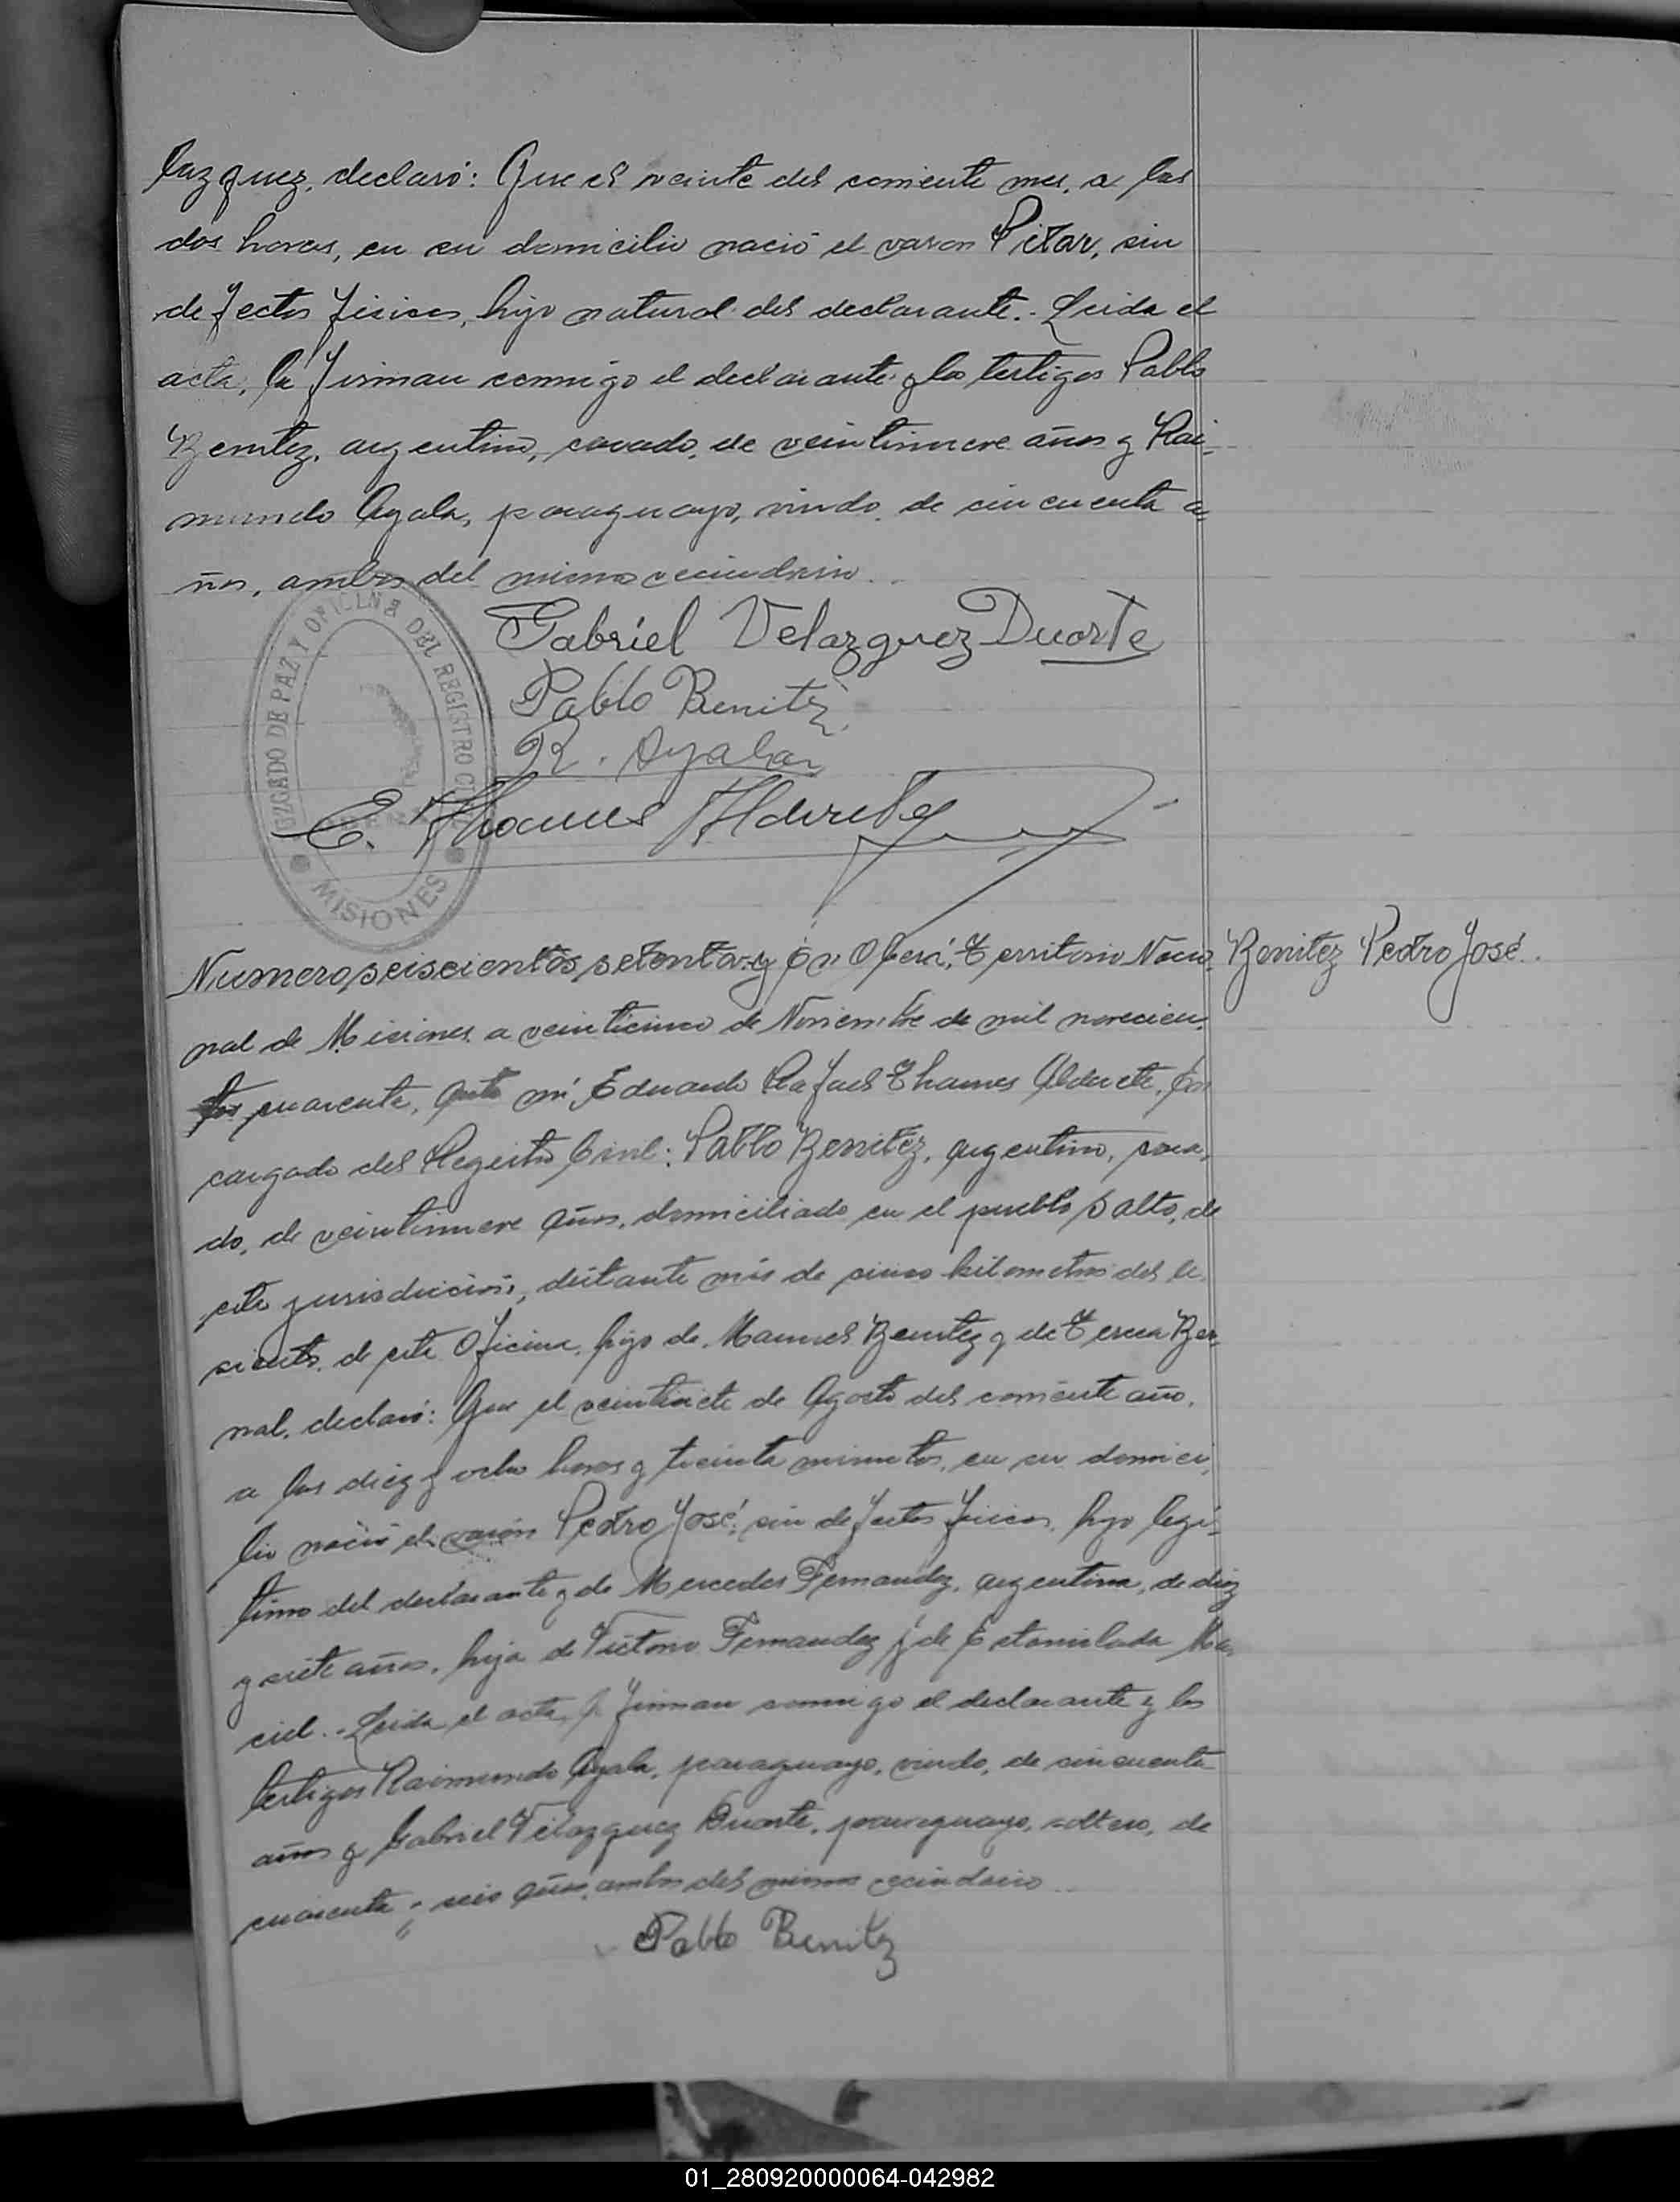 lazquez, declaró: Que el veinte del corriente mes, a las
dos horas, en su domicilio nació el varon Pilar, sin
defectos fisicos, hijo natural del declarante.- Leida el
acta, la firman conmigo el declarante y los testigos Pablo
Benitez, argentino, casado, de veintinueve años y Rai-
mundo Ayala, paraguayo, viudo, de cincuenta a-
ños, ambos del mismo vecindario.
Gabriel Velazquez Duarte
Pablo Benitez
R. Ayala
E. Thames Alderete
JUZGADO DE PAZ Y OFICINA DEL REGISTRO CIVIL
MISIONES
Numero seiscientos setenta y En Oberá, Territorio Nacio-
Benitez Pedro José.
nal de Misiones a veinticinco de Noviembre de mil novecien-
tos cuarenta, ante mí, Eduardo Rafael Thames Alderete, En-
cargado del Registro Civil: Pablo Benitez, argentino, casa-
do, de veintinueve años, domiciliado en el pueblo Salto, de
esta jurisdicción, distante más de cinco kilometros del a-
siento de esta Oficina, hijo de Manuel Benitez y de Teresa Ber-
nal, declaró: Que el veintisiete de Agosto del corriente año,
a las diez y ocho horas y treinta minutos, en su domici-
lio nació el varón Pedro José, sin defectos fisicos, hijo legí-
timo del declarante y de Mercedes Fernandez, argentina, de diez
y siete años, hija de Victorio Fernandez y de Estanislada Ma-
ciel.- Leida el acta, la firman conmigo el declarante y los
testigos Raimundo Ayala, paraguayo, viudo, de cincuenta
años y Gabriel Velazquez Duarte, paraguayo, soltero, de
cuarenta y seis años, ambos del mismo vecindario
Pablo Benitez
01_280920000064-042982